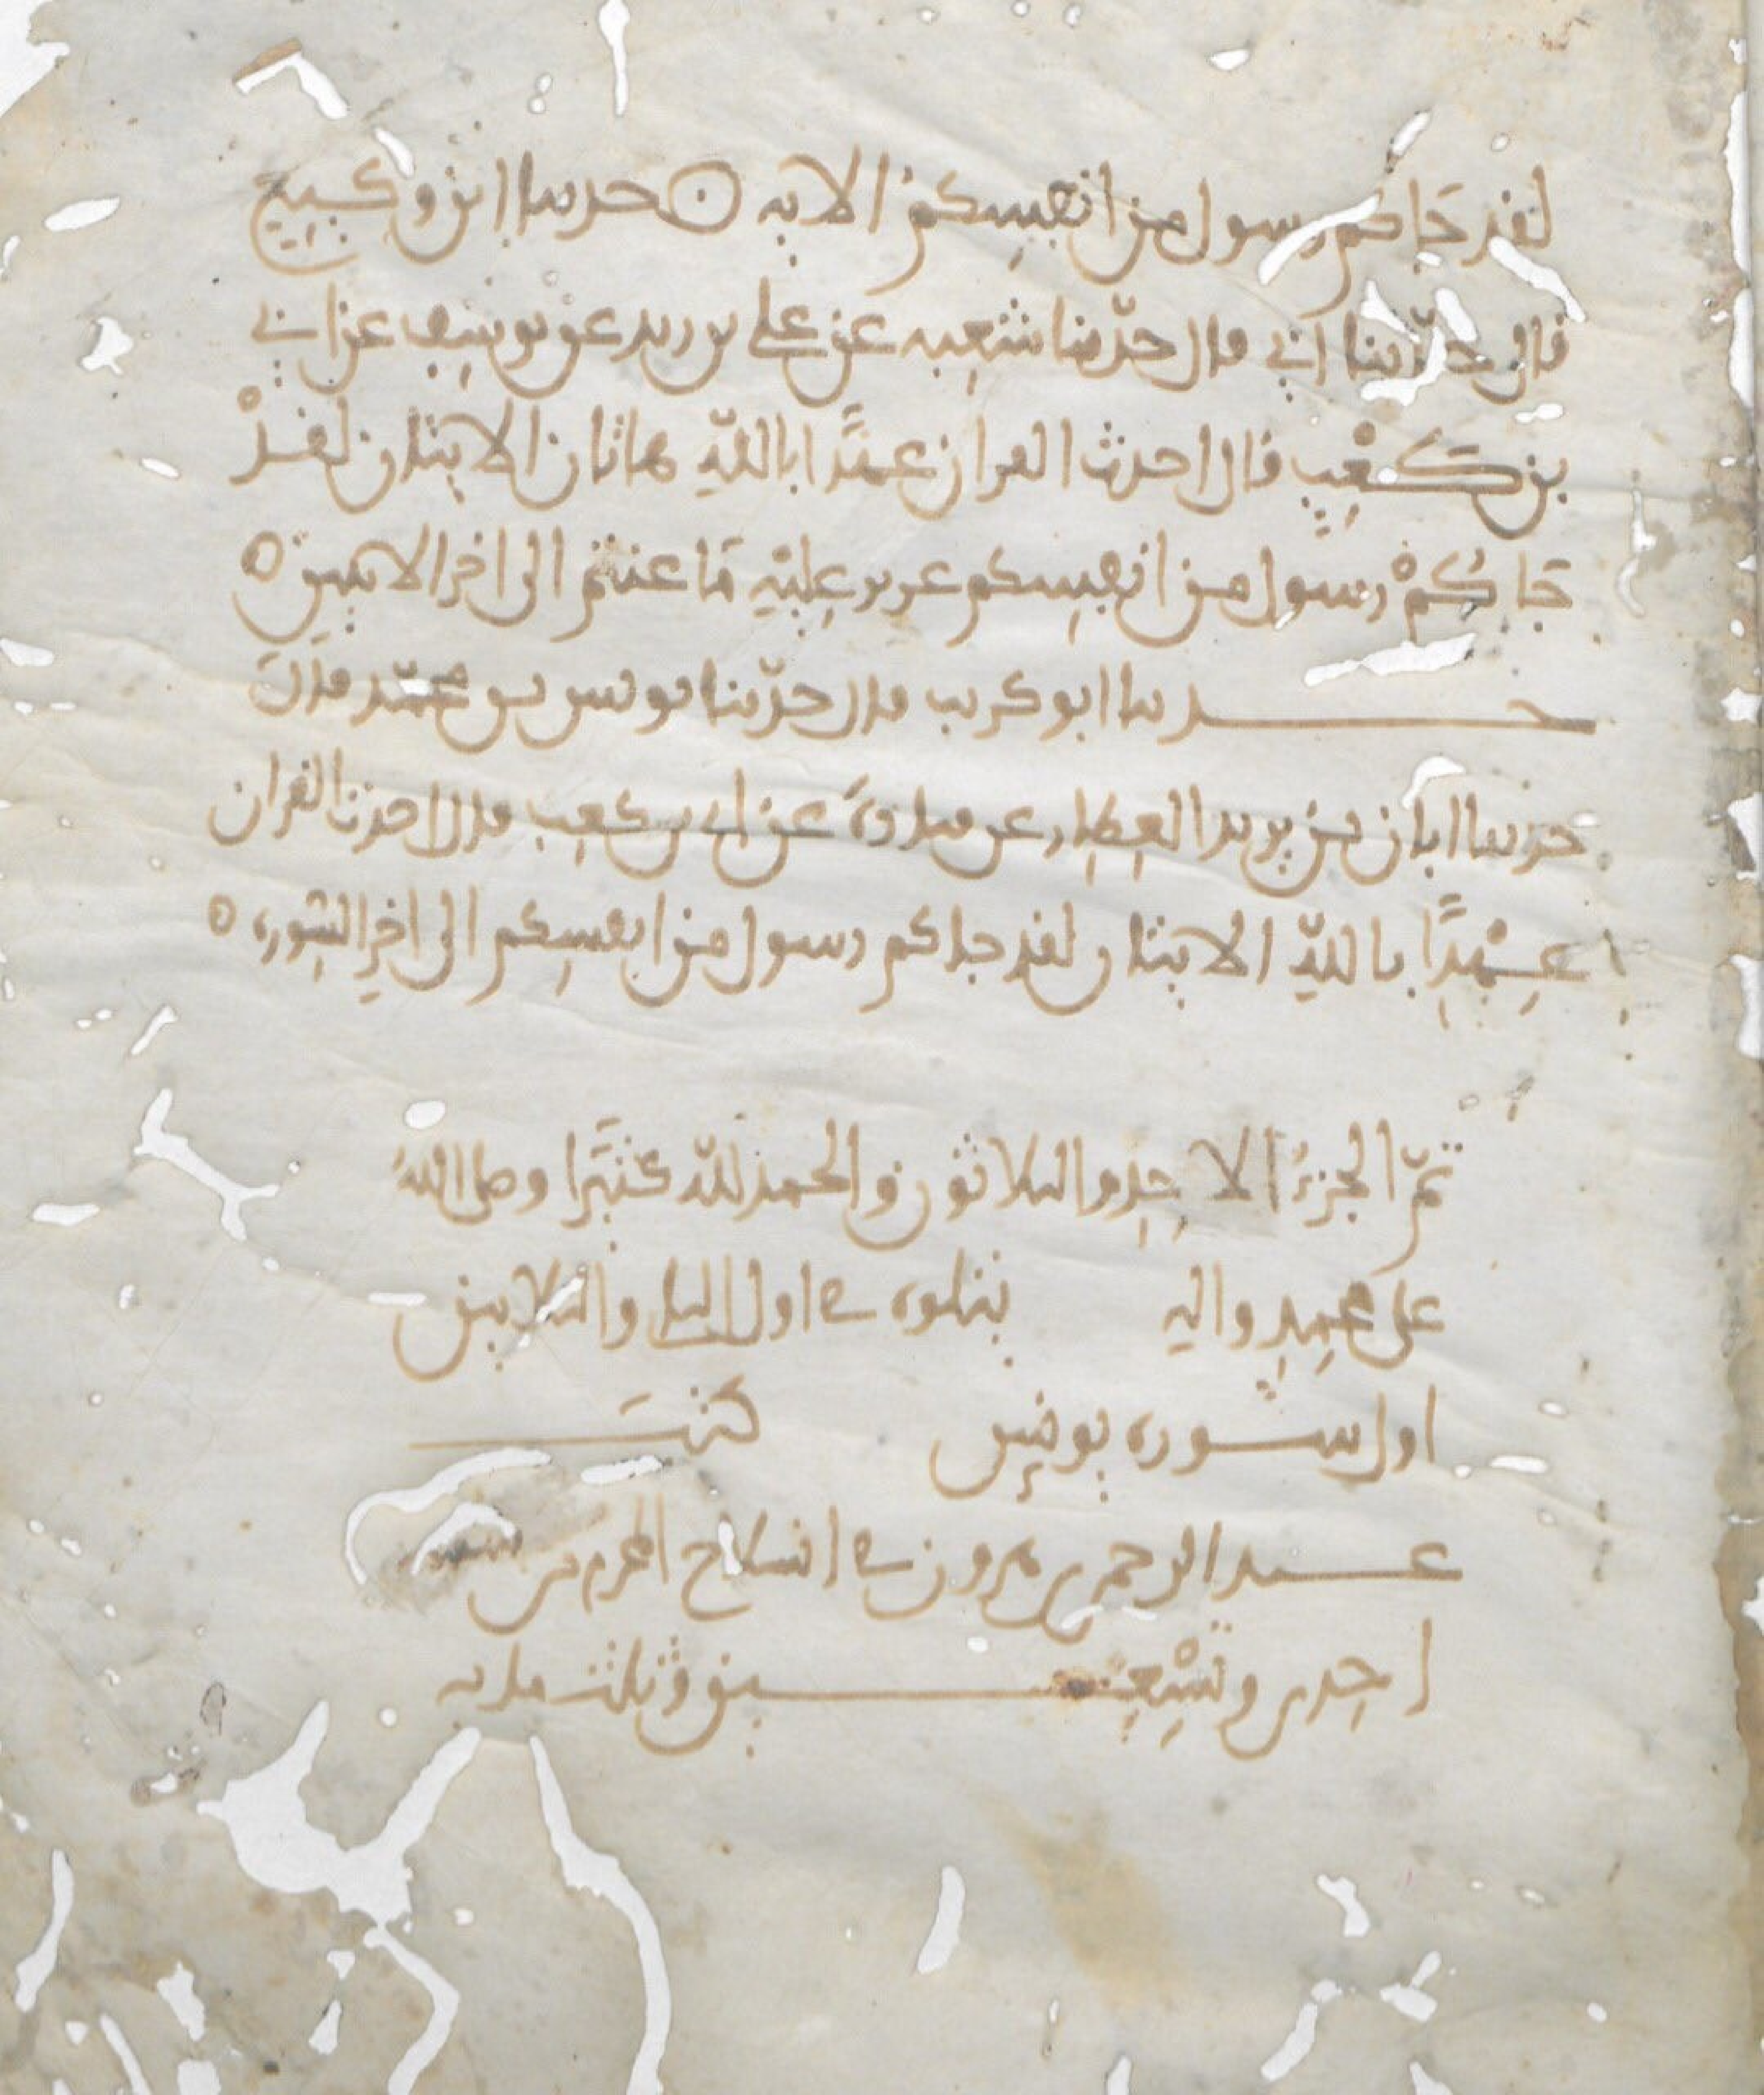 لقد جاكم رسول من انفسكم الايه ۞ حدثنا ابن وكيع
قال حدثنا ابي قال حدثنا شعبه عن علي بن زيد عن يوسف عن ابي
بن كعب قال احدث القران عهدا بالله هاتان الايتان لقد
جاكم رسول من انفسكم عزيز عليه ما عنتم الى اخر الايتين ٥
حدثنا ابو كريب قال حدثنا يونس بن محمد قال
حدثنا ابان بن يزيد العطار عن قتادة عن ابي بن كعب قال احدث القران
عهدا بالله الايتان لقد جاكم رسول من انفسكم الى اخر السوره ٥
تم الجزء الاحد والثلاثون والحمد لله كثيرا وصلى الله
على محمد واله يتلوه في اول الثاني والثلاثين
اول سوره يونس كتب
عبد الرحمن بن هرون في انسلاخ المحرم من سنه
احدى وتسعين وثلث مايه